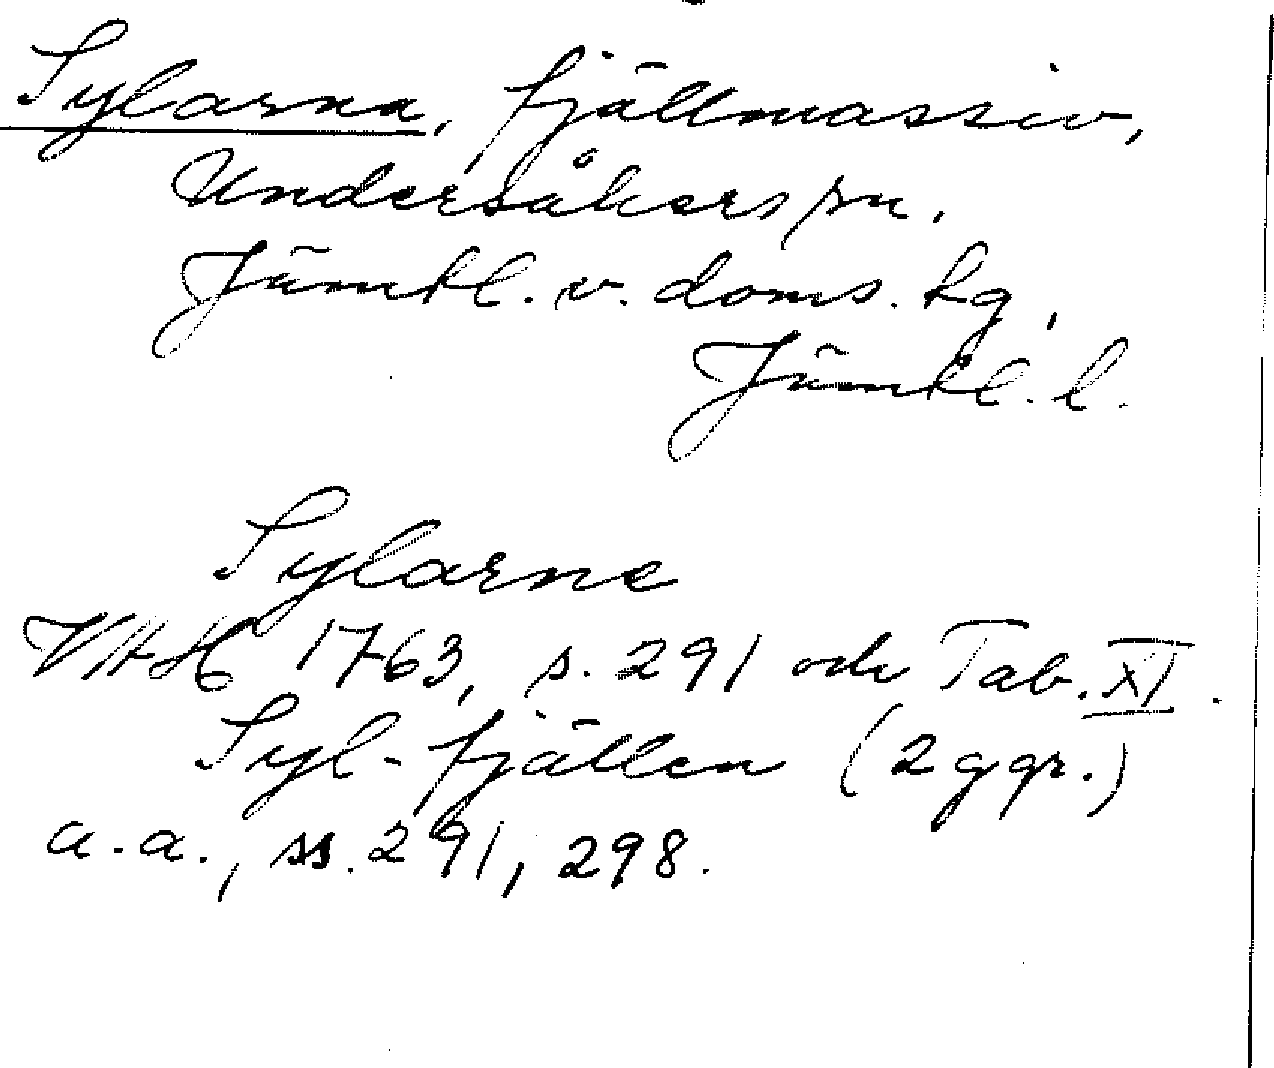 Sylarna, fjällmassiv,
Undersåkers sn.
Jämtl. v. doms. tg,
Jämtl. l.
Sylarne
VAH 1763, s. 291 och Tab. XI.
Syl-fjällen (2 ggr.)
a.a., ss. 291, 298.